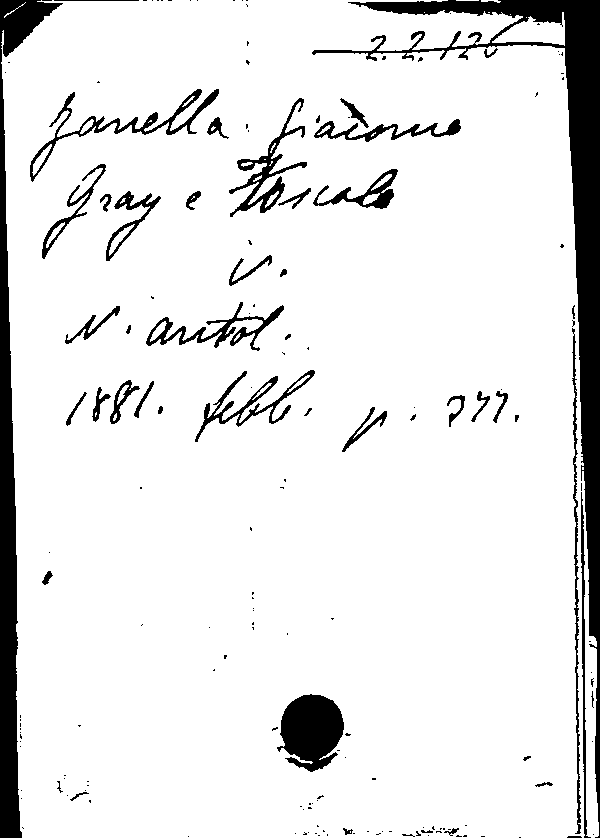 2.2.126
Zanella Giacomo
Gray e Foscolo
v.
N. antol.
1881. febb. p. 377.